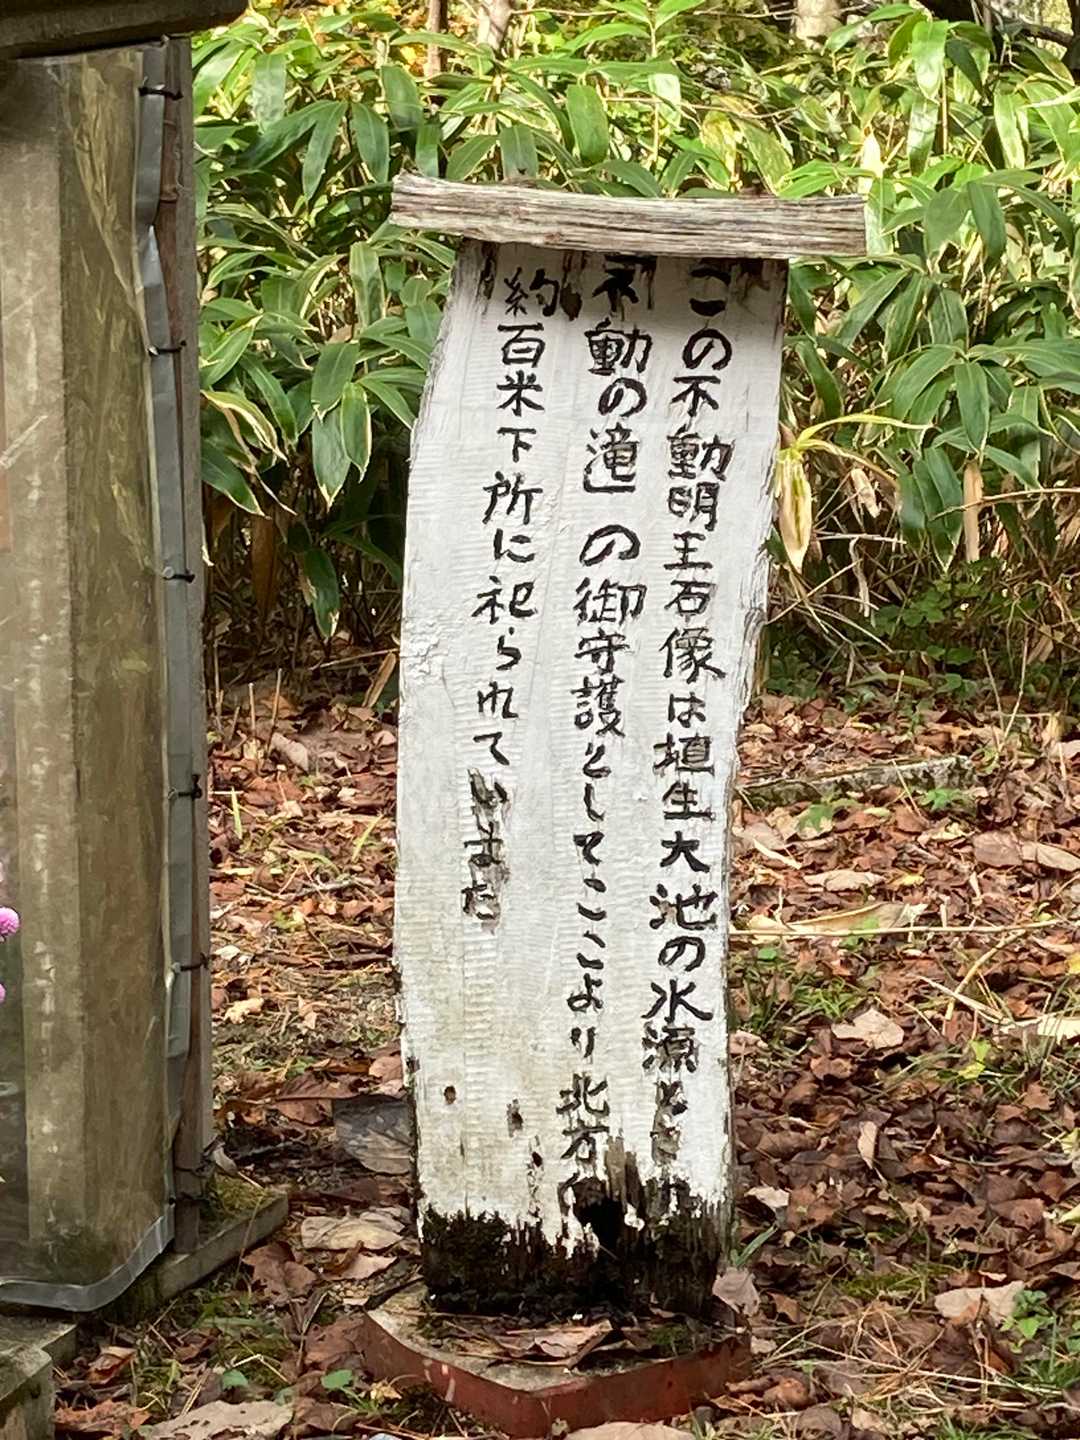 この不動明王石像は埴生大池の水源とされ
「不動の滝」の御守護としてここより北方
約百米下所に祀られていました